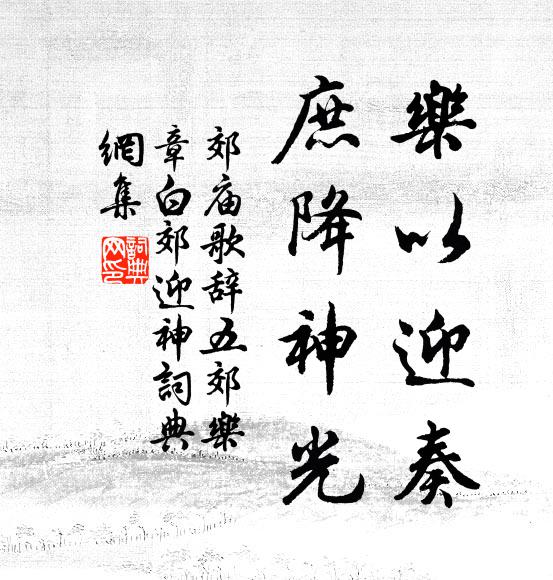 樂以迎奏
庶降神光
郊庙歌辞五郊樂
章白郊迎神詞典
網集
詞典網印